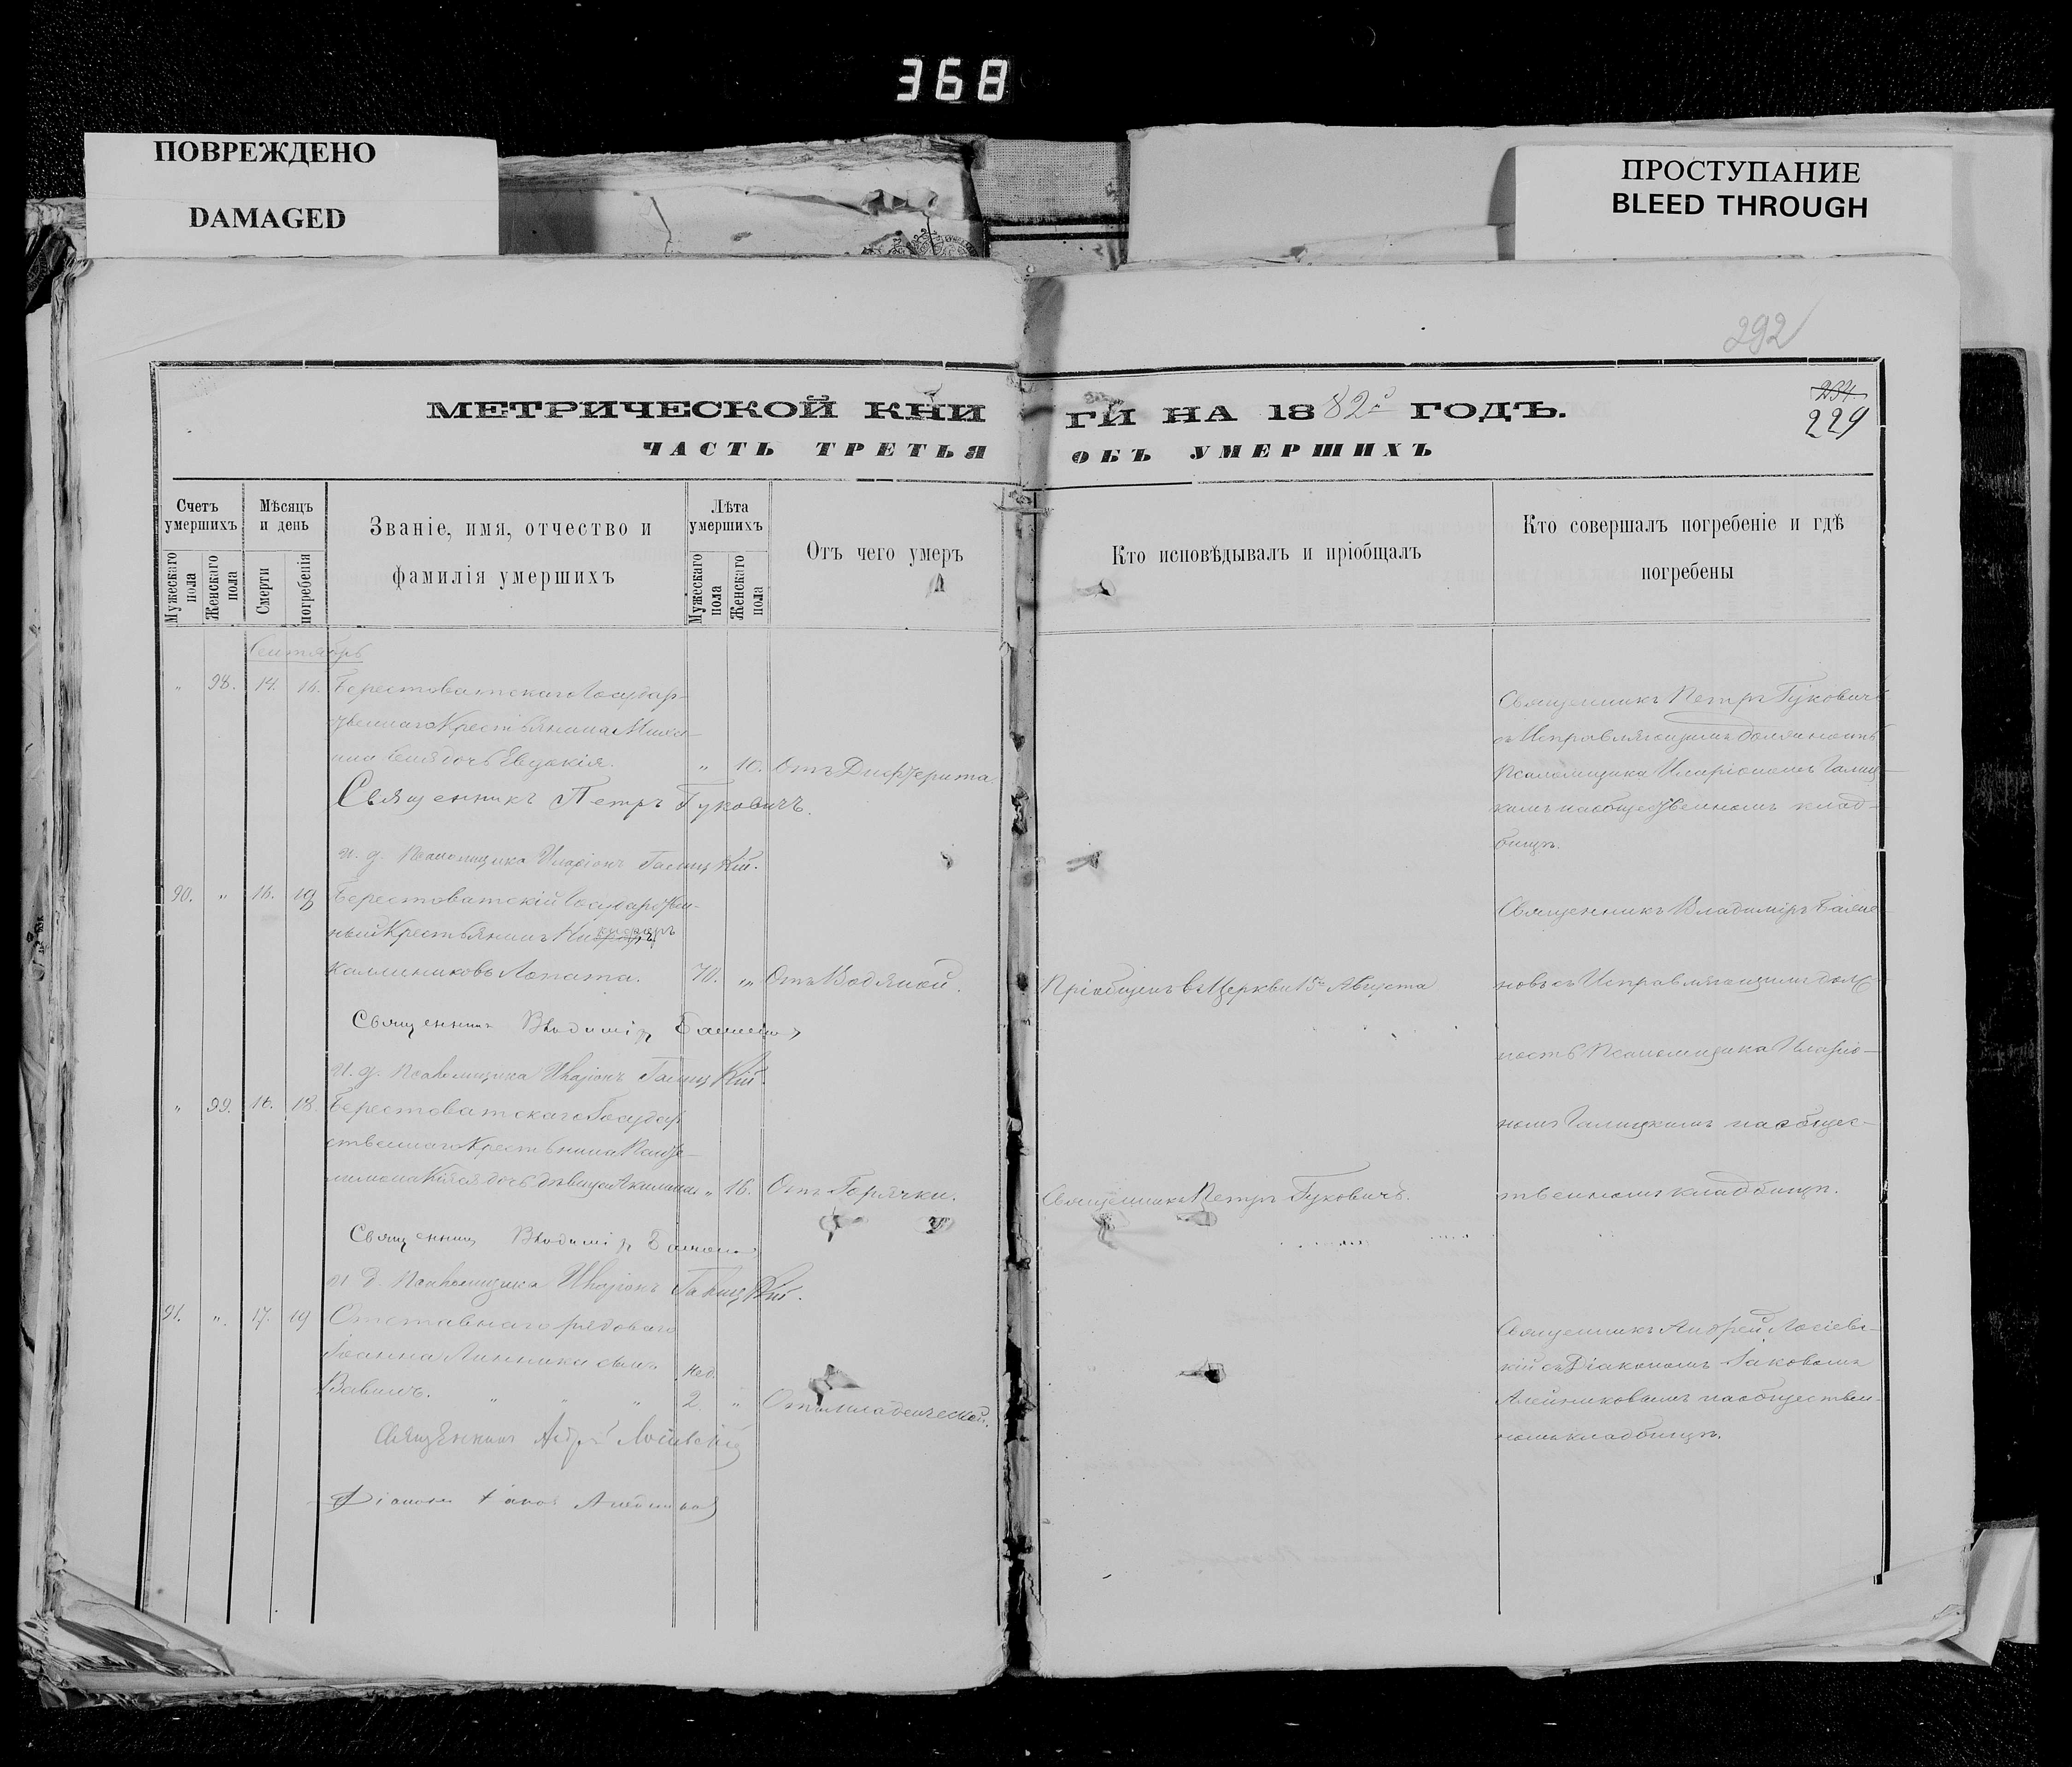 368
ПОВРЕЖДЕНО
DAMAGED
ПРОСТУПАНИЕ
BLEED THROUGH
292
МЕТРИЧЕСКОЙ КНИ ГИ НА 1882й ГОДЪ.
234
229
ЧАСТЬ ТРЕТЬЯ ОБЪ УМЕРШИХЪ
Счетъ умершихъ
Мужескаго пола
Женскаго пола
Мѣсяцъ и день
Смерти
погребенія
Званіе, имя, отчество и
фамилія умершихъ
Лѣта умершихъ
Мужескаго пола
Женскаго пола
Отъ чего умеръ
Кто исповѣдывалъ и пріобщалъ
Кто совершалъ погребеніе и гдѣ
погребены
Сентябрь
" 98. 14. 16. Берестоватскаго Государ-
ственнаго Крестьянина
дочь Евдокія. " 10. Отъ Дифтерита.
Священникъ Петръ Гуковичъ
съ Исправляющимъ должность
Псаломщика Иларіономъ Галиц-
кимъ на общественномъ клад-
бищѣ.
Священникъ Петръ Гуковичъ.
и. д. Псаломщика Иларіонъ Галицкій.
90. " 16. 19 Берестоватскій Государствен-
ный Крестьянинъ
Каллиниковъ Лопата. 70. " Отъ Водяной.
Пріобщенъ въ Церкви 15го Августа
Священникъ Владиміръ
новъ съ Исправляющимъ долж-
ность Псаломщика Иларіо-
номъ Галицкимъ на общес-
твенномъ кладбищѣ.
Священникъ Владиміръ
и. д. Псаломщика Иларіонъ Галицкій.
" 99. 16. 18. Берестоватскаго Государ-
ственнаго Крестьянина Панте-
лимона дочь дѣвица Акилина " 16. Отъ Горячки.
Священникъ Петръ Гуковичъ.
Священникъ Владиміръ
и. д. Псаломщика Иларіонъ Галицкій.
91. ". 17. 19 Отставнаго рядоваго
Іоанна Линника сынъ
Вавилъ. " " " нед. 2. " Отъ младенческой.
Священникъ Андрей Лосіевс-
кій съ Діакономъ Іаковомъ
Алейниковымъ на обществен-
номъ кладбищѣ.
Священникъ Андрей Лосіевскій
Діаконъ Іаковъ Алейниковъ